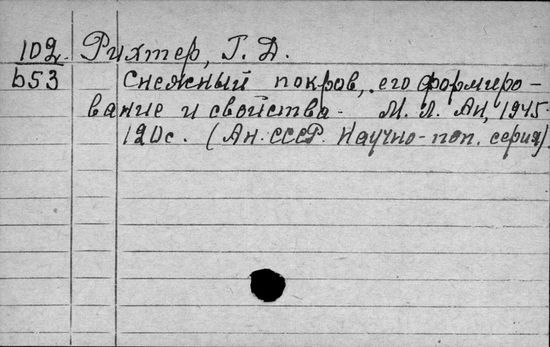 102 Рихтер, Г. Д.
b53 Снежный покров, его формиро-
вание и свойства. М. Л. АН, 1945.
120с. (АН. СССР. Научно-поп. серия).